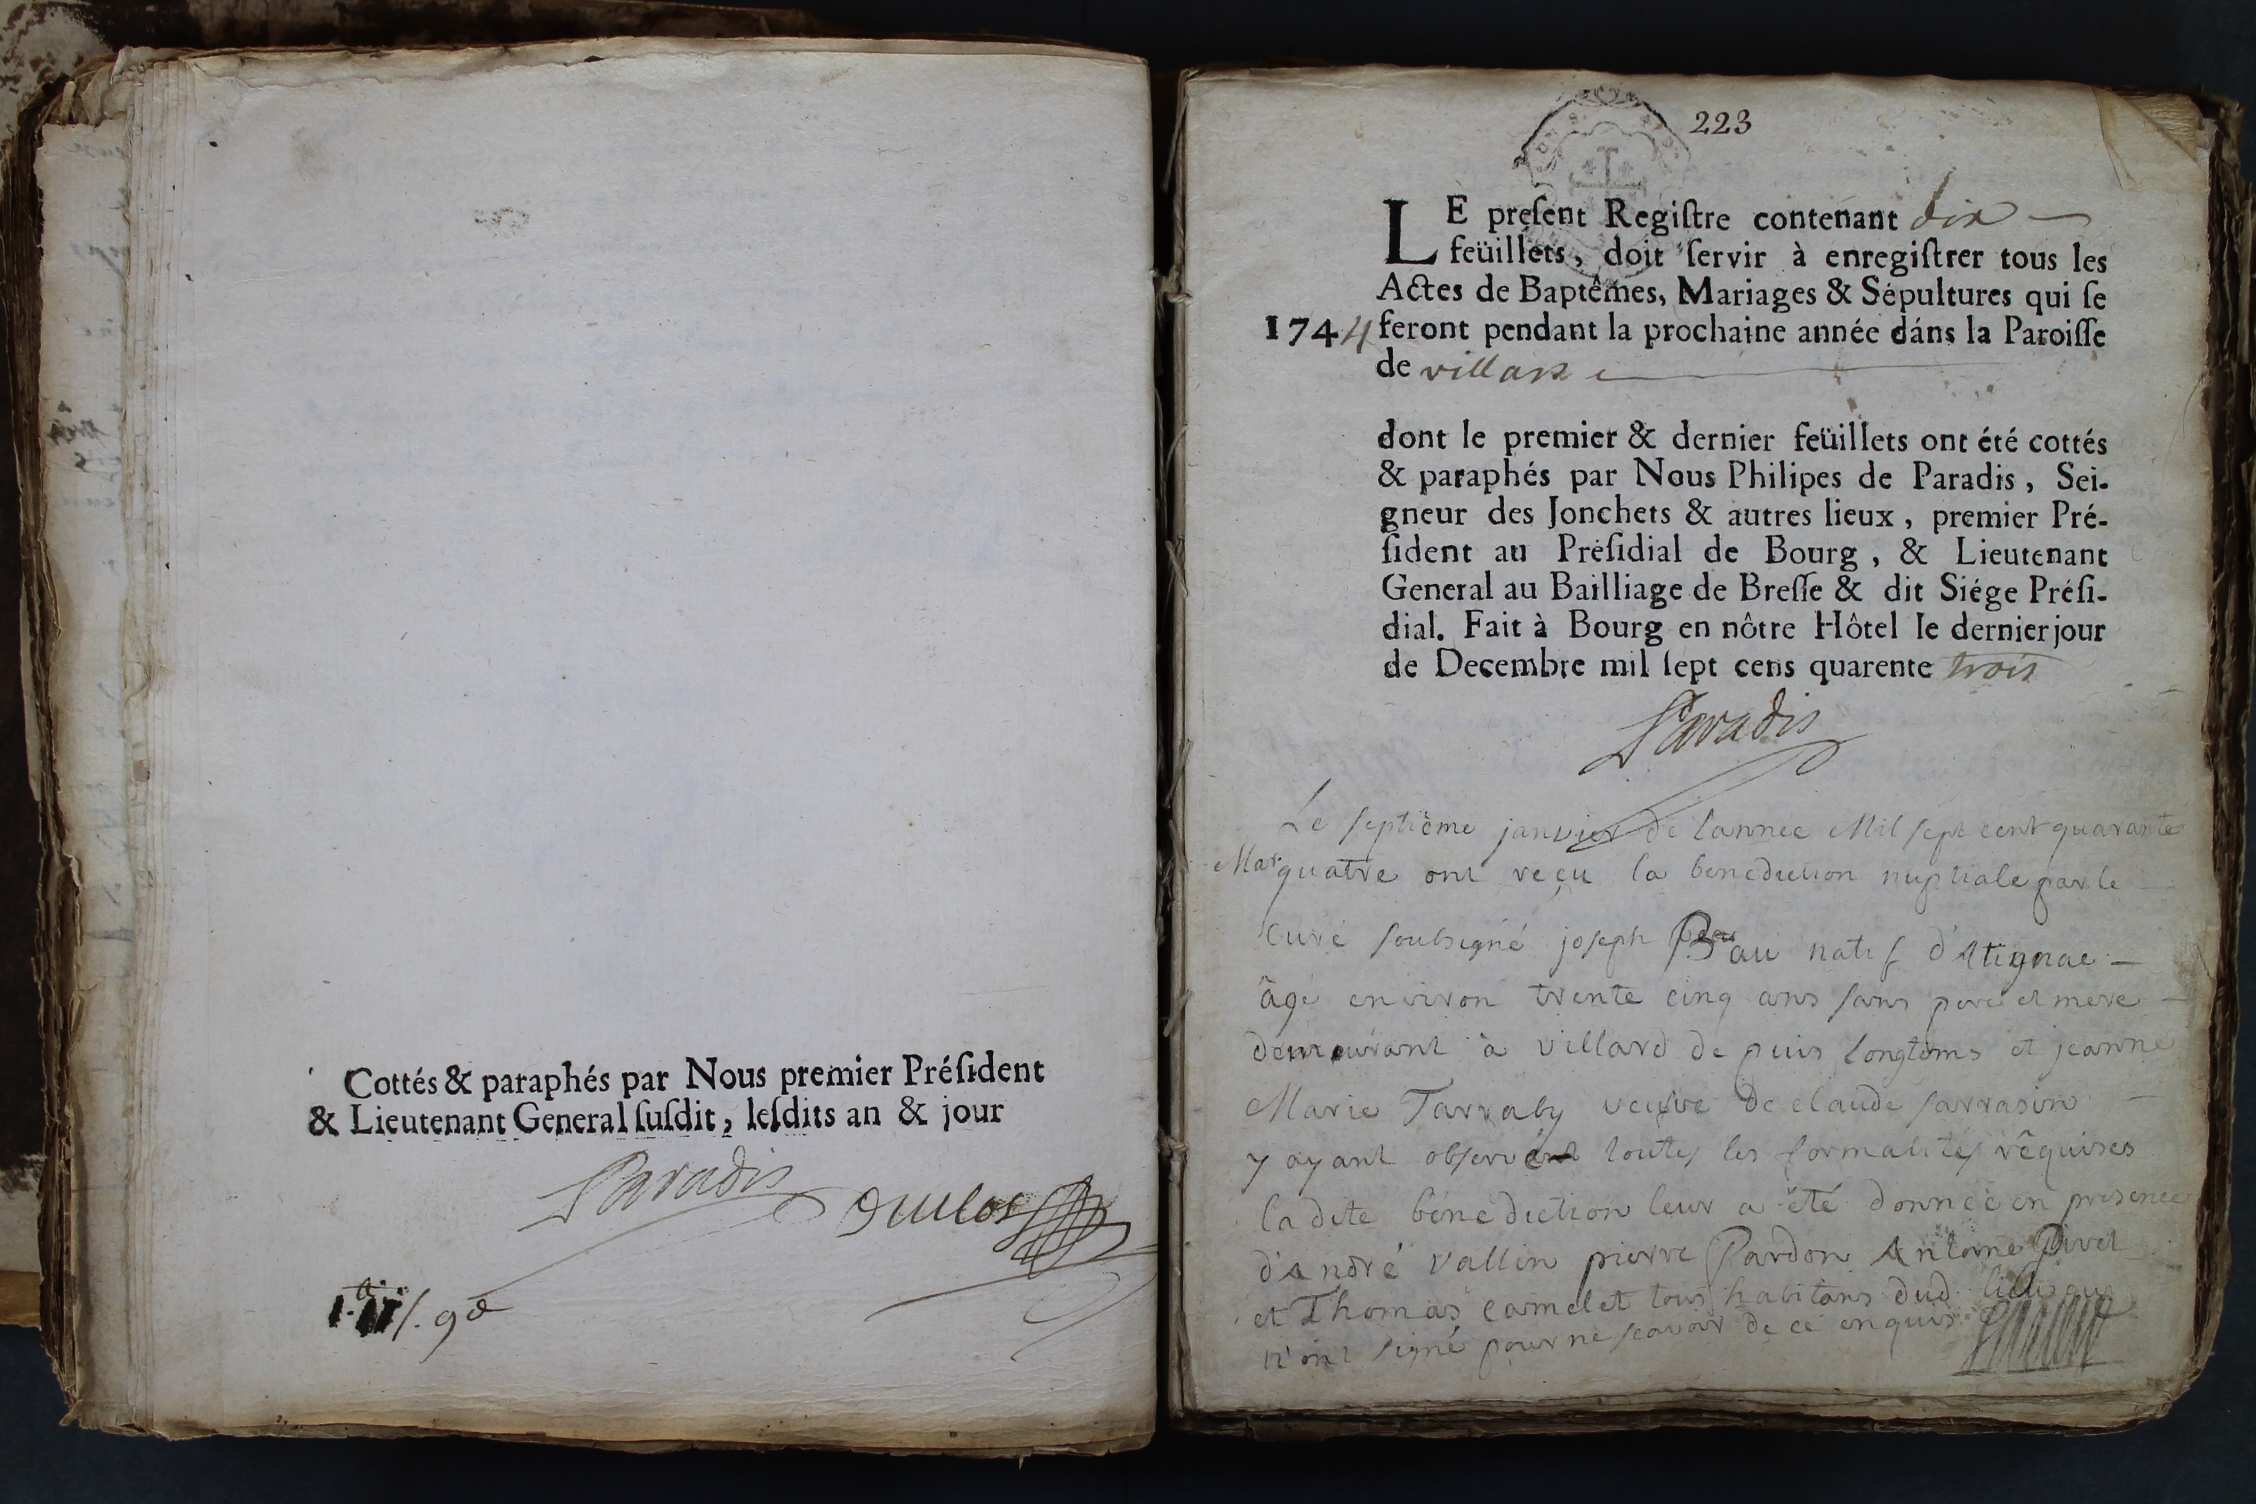 Cottés & paraphés par Nous premier Préſident
& Lieutenant General ſuſdit, leſdits an & jour
Paradis
223
LE preſent Regiſtre contenant dix
feüillets, doit ſervir à enregiſtrer tous les
Actes de Baptêmes, Mariages & Sépultures qui ſe
1744 feront pendant la prochaine année dáns la Paroiſſe
de villars
dont le premier & dernier feüillets ont été cottés
& paraphés par Nous Philipes de Paradis, Sei-
gneur des Jonchets & autres lieux, premier Pré-
ſident au Préſidial de Bourg, & Lieutenant
General au Bailliage de Breſſe & dit Siége Préſi-
dial. Fait à Bourg en nôtre Hôtel le dernier jour
de Decembre mil ſept cens quarente trois
Paradis
Le septiême janvier de lannee Mil sept cent quarante
Mar quatre ont reçu la benediction nuptiale par le
Curé soubsigné joseph natif d'Atignac
âgé environ trente cinq ans sans pere et mere
demeurant à villard de puis longtems et jeanne
Marie Tarraby veufve de claude sarrasin
y ayant observé toutes les formalités rêquises
ladite bénédiction leur a été donnée en presence
d'André vallin pierre Pardon Antoine Pivet
et Thomas camelet tous habitans dud lieu qui
n'ont signé pour ne scavoir de ce enquis